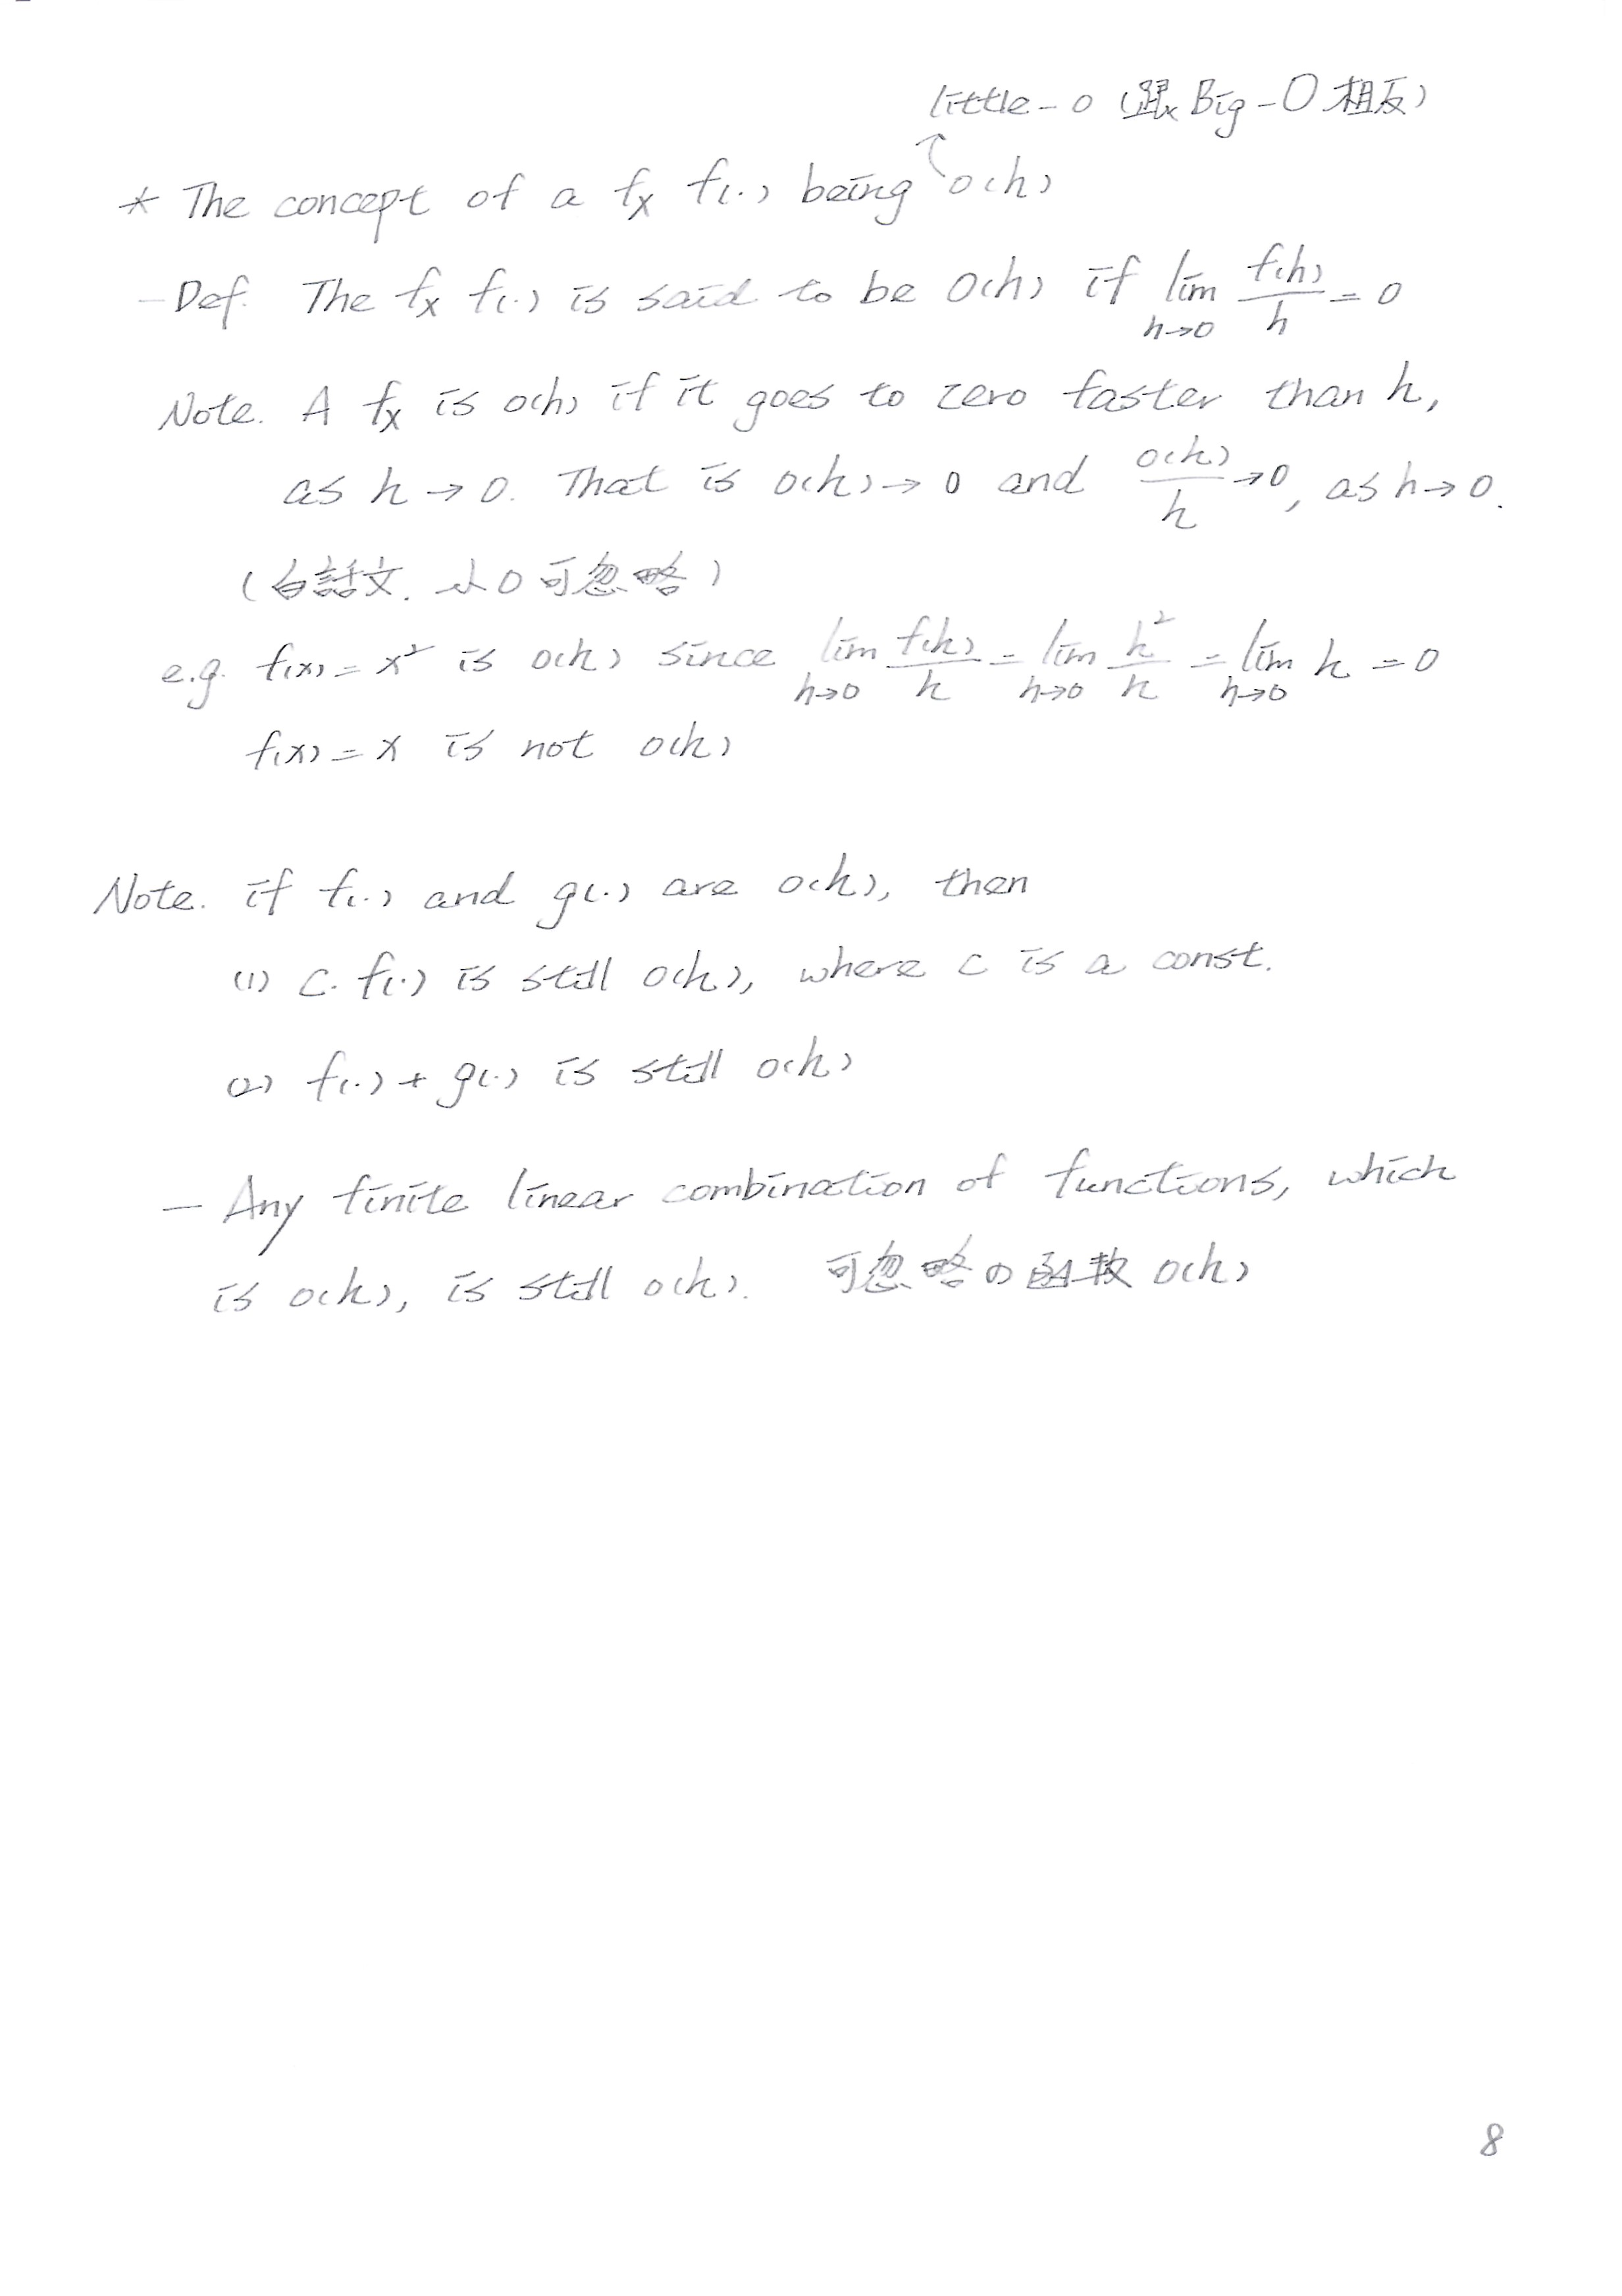 little-o (跟 Big-O 相反)
* The concept of a fx f(·) being o(h)
- Def. The fx f(·) is said to be o(h) if lim_{h→0} f(h)/h = 0
Note. A fx is o(h) if it goes to zero faster than h,
as h → 0. That is o(h) → 0 and o(h)/h → 0, as h → 0.
(白話文. 小o可忽略)
e.g. f(x) = x² is o(h) since lim_{h→0} f(h)/h = lim_{h→0} h²/h = lim_{h→0} h = 0
f(x) = x is not o(h)
Note. if f(·) and g(·) are o(h), then
(1) c·f(·) is still o(h), where c is a const.
(2) f(·) + g(·) is still o(h)
- Any finite linear combination of functions, which
is o(h), is still o(h). 可忽略の函数 o(h)
8